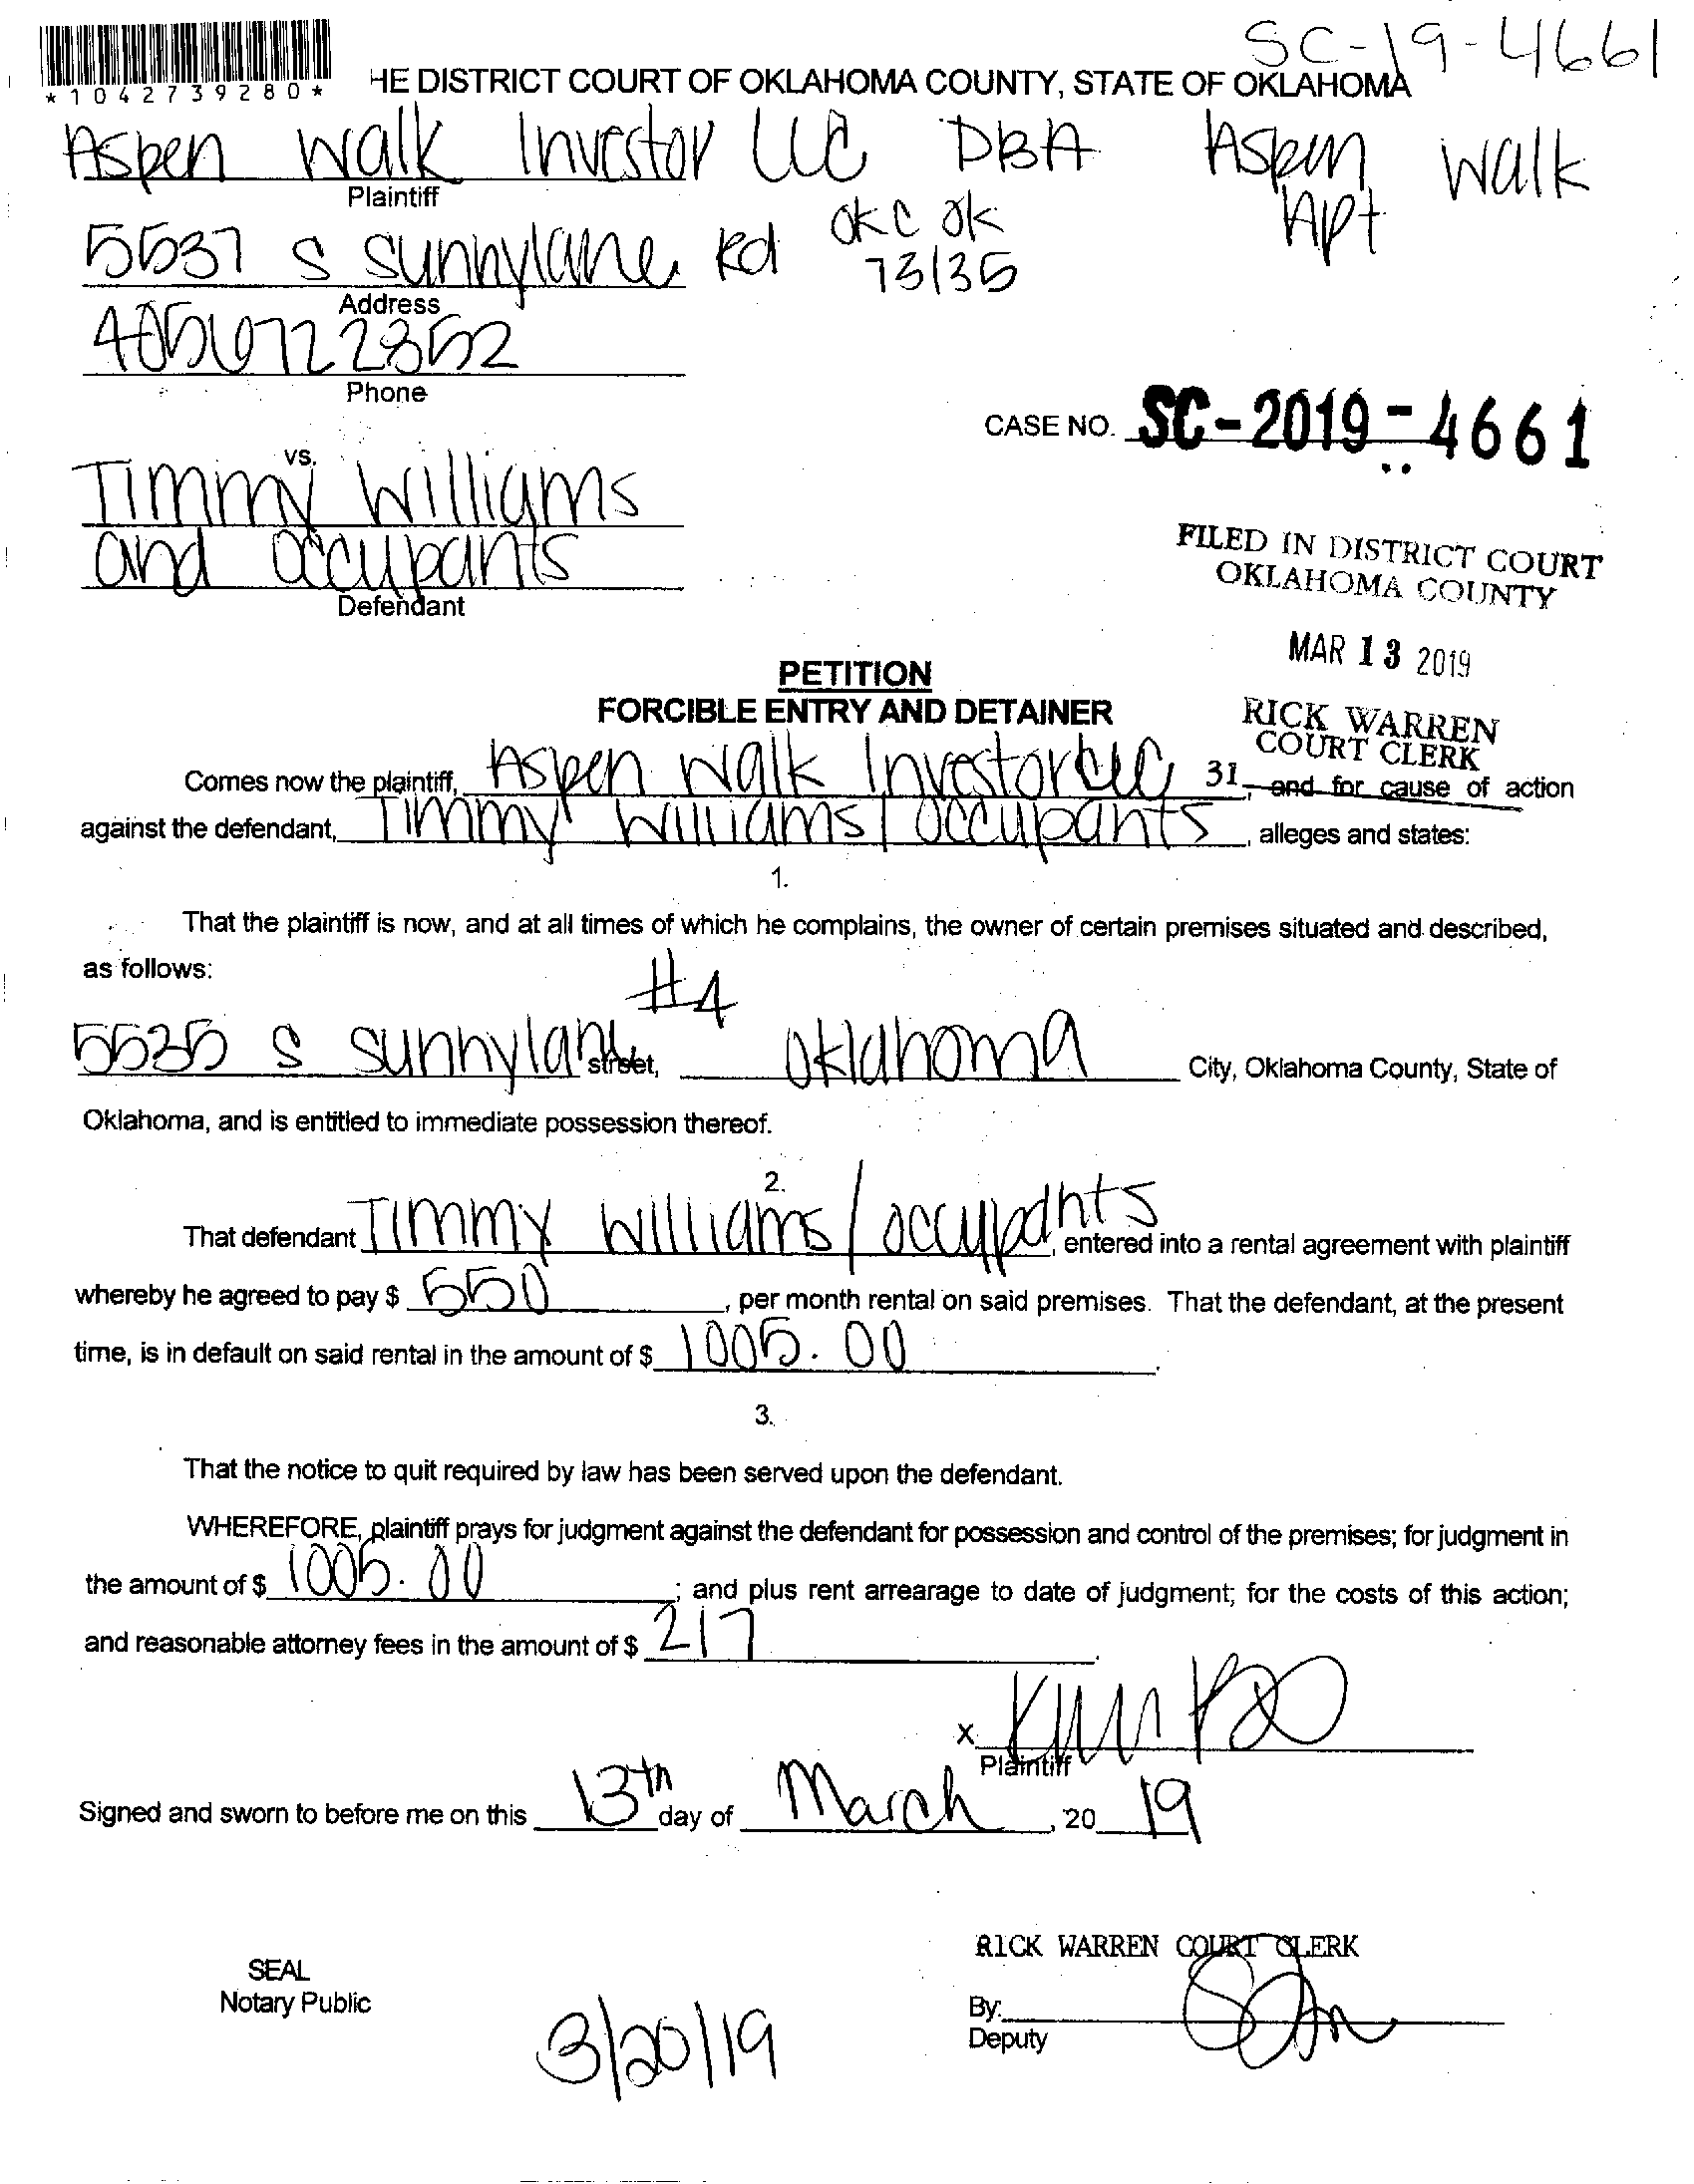 SC-19-4661
*1042739280*
HE DISTRICT COURT OF OKLAHOMA COUNTY, STATE OF OKLAHOMA
Aspen Walk Investor LLC DBA Aspen Walk Apt
Plaintiff
5537 S Sunnylane Rd OKC OK 73135
Address
4056722352
Phone
CASE NO. SC-2019-4661
vs.
Timmy Williams
and occupants
Defendant
FILED IN DISTRICT COURT
OKLAHOMA COUNTY
MAR 13 2019
PETITION
FORCIBLE ENTRY AND DETAINER
RICK WARREN
COURT CLERK
31
Comes now the plaintiff, Aspen Walk Investor LLC, and for cause of action
against the defendant, Timmy Williams/occupants, alleges and states:
1.
That the plaintiff is now, and at all times of which he complains, the owner of certain premises situated and described,
as follows:
#4
5535 S Sunnylane street, Oklahoma City, Oklahoma County, State of
Oklahoma, and is entitled to immediate possession thereof.
2.
That defendant Timmy Williams/occupants, entered into a rental agreement with plaintiff
whereby he agreed to pay $ 550, per month rental on said premises. That the defendant, at the present
time, is in default on said rental in the amount of $ 1005.00.
3.
That the notice to quit required by law has been served upon the defendant.
WHEREFORE, plaintiff prays for judgment against the defendant for possession and control of the premises; for judgment in
the amount of $ 1005.00; and plus rent arrearage to date of judgment; for the costs of this action;
and reasonable attorney fees in the amount of $ 217.
X
Plaintiff
Signed and sworn to before me on this 13th day of March, 2019
RICK WARREN COURT CLERK
SEAL
Notary Public
By:
Deputy
3/20/19